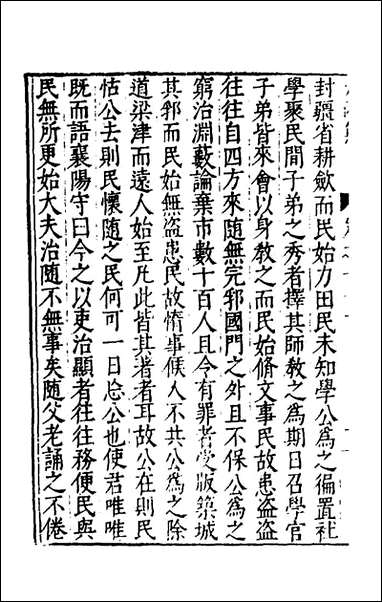 封疆省耕斂而民始力田民未知學公爲之徧置社
學聚民間子弟之秀者擇其師教之爲期日召學官
子弟皆來會以身教之而民始脩文事民故患盗盗
往往自四方來隨無完郛國門之外且不保公爲之
窮治淵藪論棄市數十百人且令有罪者受版築城
其郛而民始無盗患民故惰事候人不共公爲之除
道梁津而遠人始至凡此皆其著者耳故公在則民
怙公去則民懷隨之民何可一日忘公也使君唯唯
既而語襄陽守曰今之以吏治顯者往往務便民與
民無所更始大夫治隨不無事矣隨父老誦之不倦